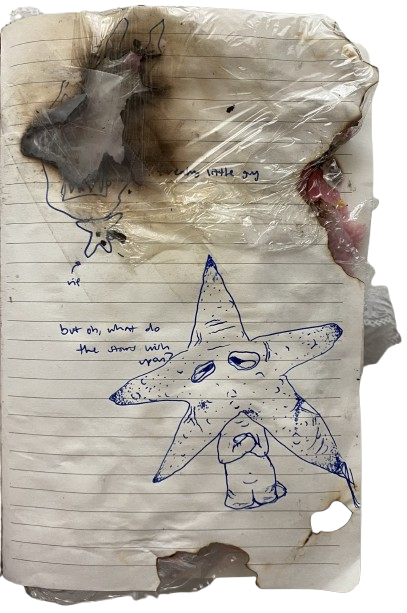 little guy
vip
but oh, what do
the stars wish
upon?